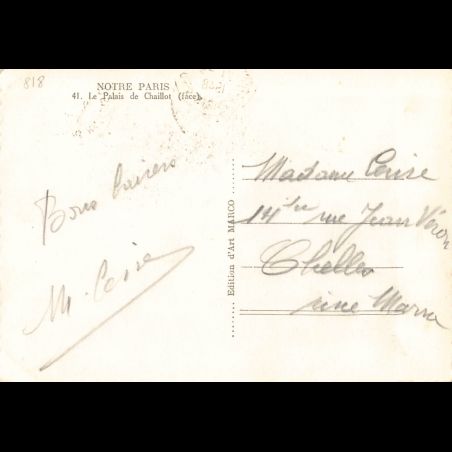 818
NOTRE PARIS
41. Le Palais de Chaillot (face)
Bons baisers
M. Cerise
Edition d'Art MARCO
Madame Cerise
14 bis rue Jean Véron
Chelles
Seine Marne